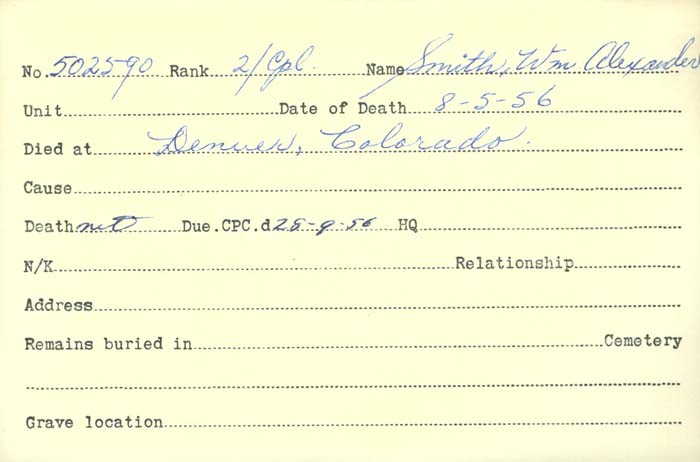 No. 502590 Rank 2/Cpl. Name Smith, Wm Alexander
Unit Date of Death 8-5-56
Died at Denver, Colorado.
Cause
Death not Due. CPC.d 28-9-56 HQ
N/K Relationship
Address
Remains buried in Cemetery
Grave location